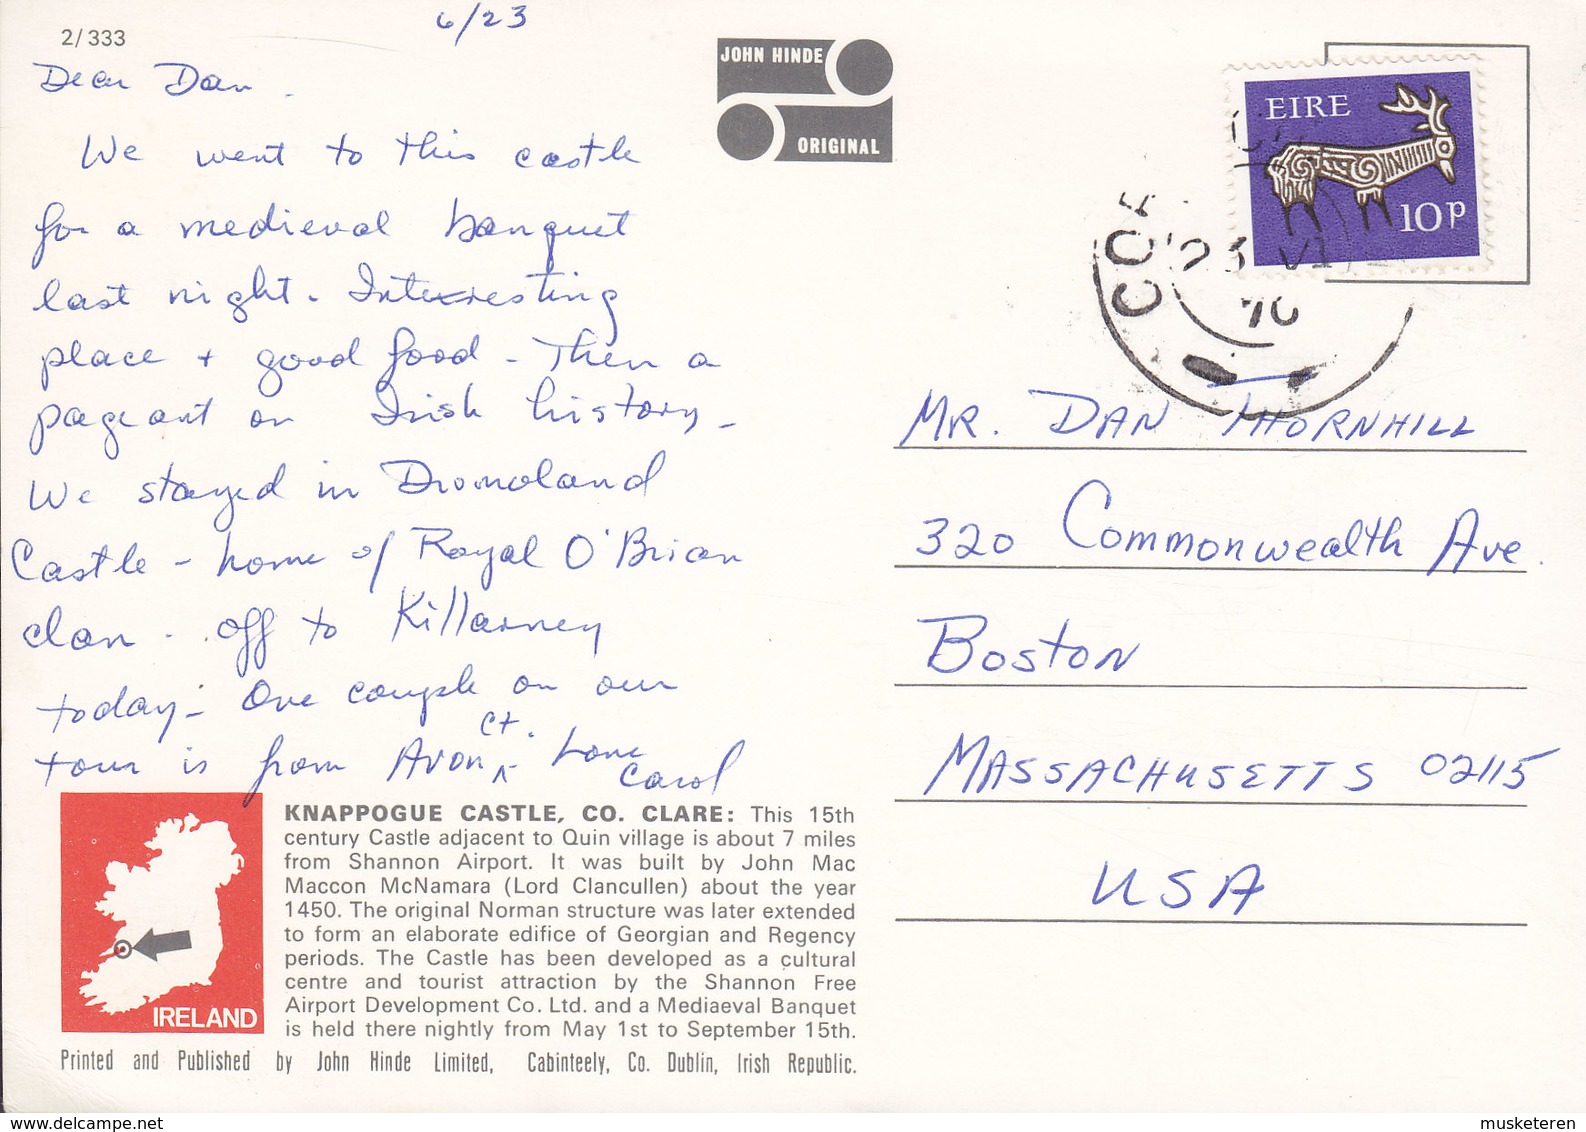 2/333
6/23
Dear Dan.
We went to this castle
for a medieval banquet
last night. Interesting
place + good food - Then a
pageant on Irish history -
We stayed in Dromoland
Castle - home of Royal O'Brian
clan - off to Killarney
today - One couple on our
tour is from Avon Ct. Love
Carol
JOHN HINDE
ORIGINAL
EIRE
10p
23 VI
MR. DAN THORNHILL
320 Commonwealth Ave.
BOSTON
MASSACHUSETTS 02115
USA
KNAPPOGUE CASTLE, CO. CLARE: This 15th
century Castle adjacent to Quin village is about 7 miles
from Shannon Airport. It was built by John Mac
Maccon McNamara (Lord Clancullen) about the year
1450. The original Norman structure was later extended
to form an elaborate edifice of Georgian and Regency
periods. The Castle has been developed as a cultural
centre and tourist attraction by the Shannon Free
Airport Development Co. Ltd. and a Mediaeval Banquet
is held there nightly from May 1st to September 15th.
IRELAND
Printed and Published by John Hinde Limited, Cabinteely, Co. Dublin, Irish Republic.
delcampe.net
musketeren